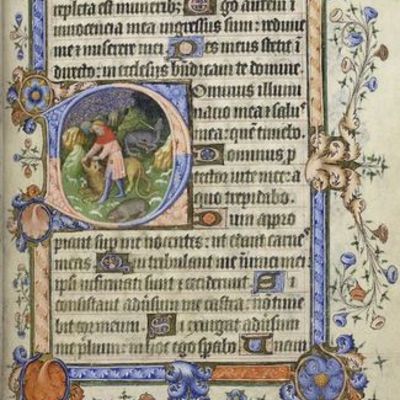 repleta est munerib; Ego autem i
innocencia mea ingressus sum : redime
me ⁊ miserere mei Pes meus stetit i
directo : in ecclesijs bn̄dicam te domine.
Dominus illumi
natio mea ⁊ salus
mea : quē timebo
Dominus p
tector vite mee : a
quo trepidabo.
Dum appro
piant sup me nocentes : ut edant carnes
meas Qui tribulant me inimici mei
ipi infirmati sunt ⁊ ceciderunt Si
consistant adūsum me castra : nō time
bit cor meum Si exurgat adūsum
me plium : in hoc ego spabo Unam